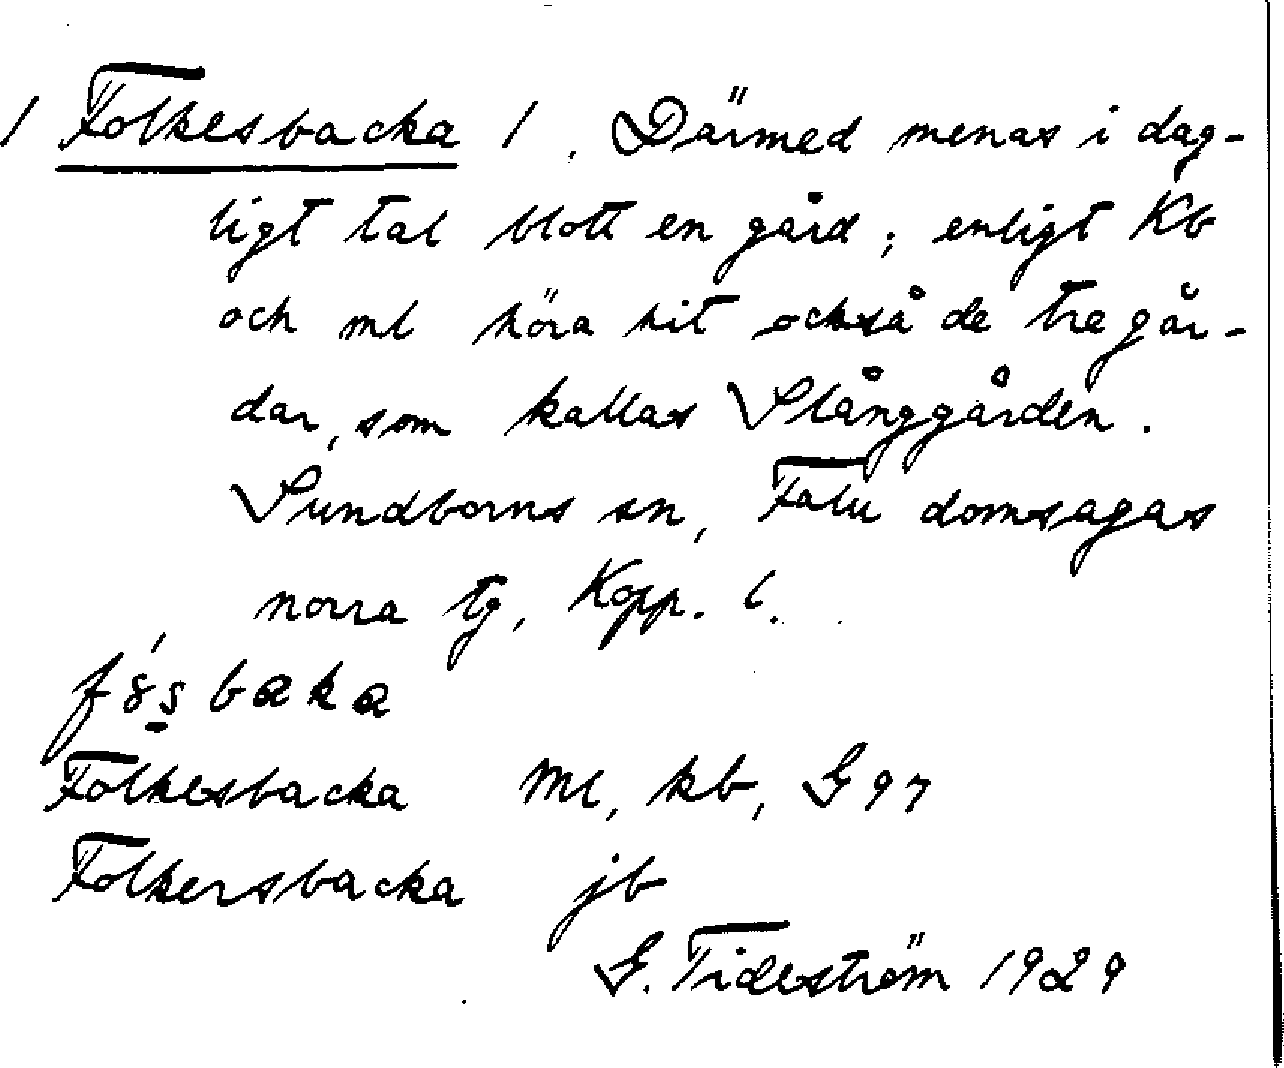 / Folkesbacka /. Därmed menas i dag-
ligt tal blott en gård; enligt Kb
och ml höra hit också de tre går-
dar, som kallas Slånggården.
Sundborns sn, Falu domsagas
norra tg, Kopp. l.
Folkesbacka Ml, kb, G 97
Folkersbacka jb
G. Tideström 1929